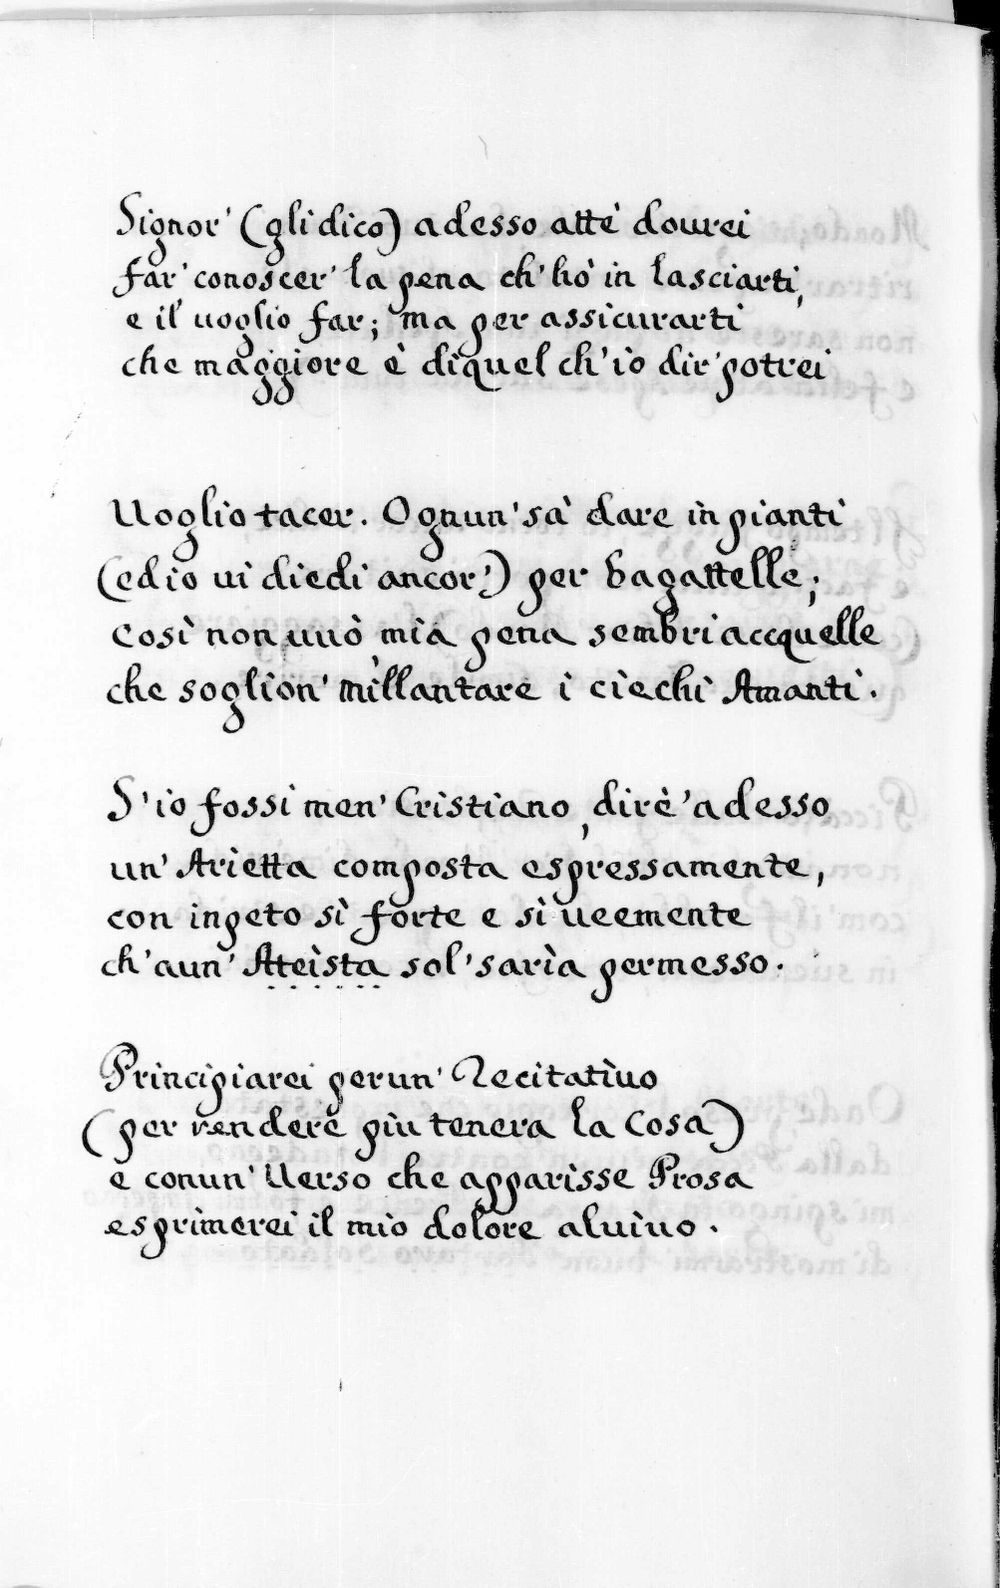 Signor' (gli dico) adesso attè dourei
far' conoscer' la pena ch'hò in lasciarti,
e il uoglio far; ma per assicurarti
che maggiore è diquel ch'io dir' potrei
Uoglio tacer. Ognun' sà dare in pianti
(ed io ui diedi ancor') per bagattelle;
Così non uuò mia pena sembri accquelle
che soglion' millantare i ciechi Amanti.
S'io fossi men' Cristiano, dire' adesso
un' Arietta composta espressamente,
con inpeto sì forte e sì ueemente
ch'aun' Ateista sol' sarìa permesso.
Principiarei perun' Recitatiuo
(per rendere piu tenera la Cosa)
e conun' Uerso che apparisse Prosa
esprimerei il mio dolore aluiuo.